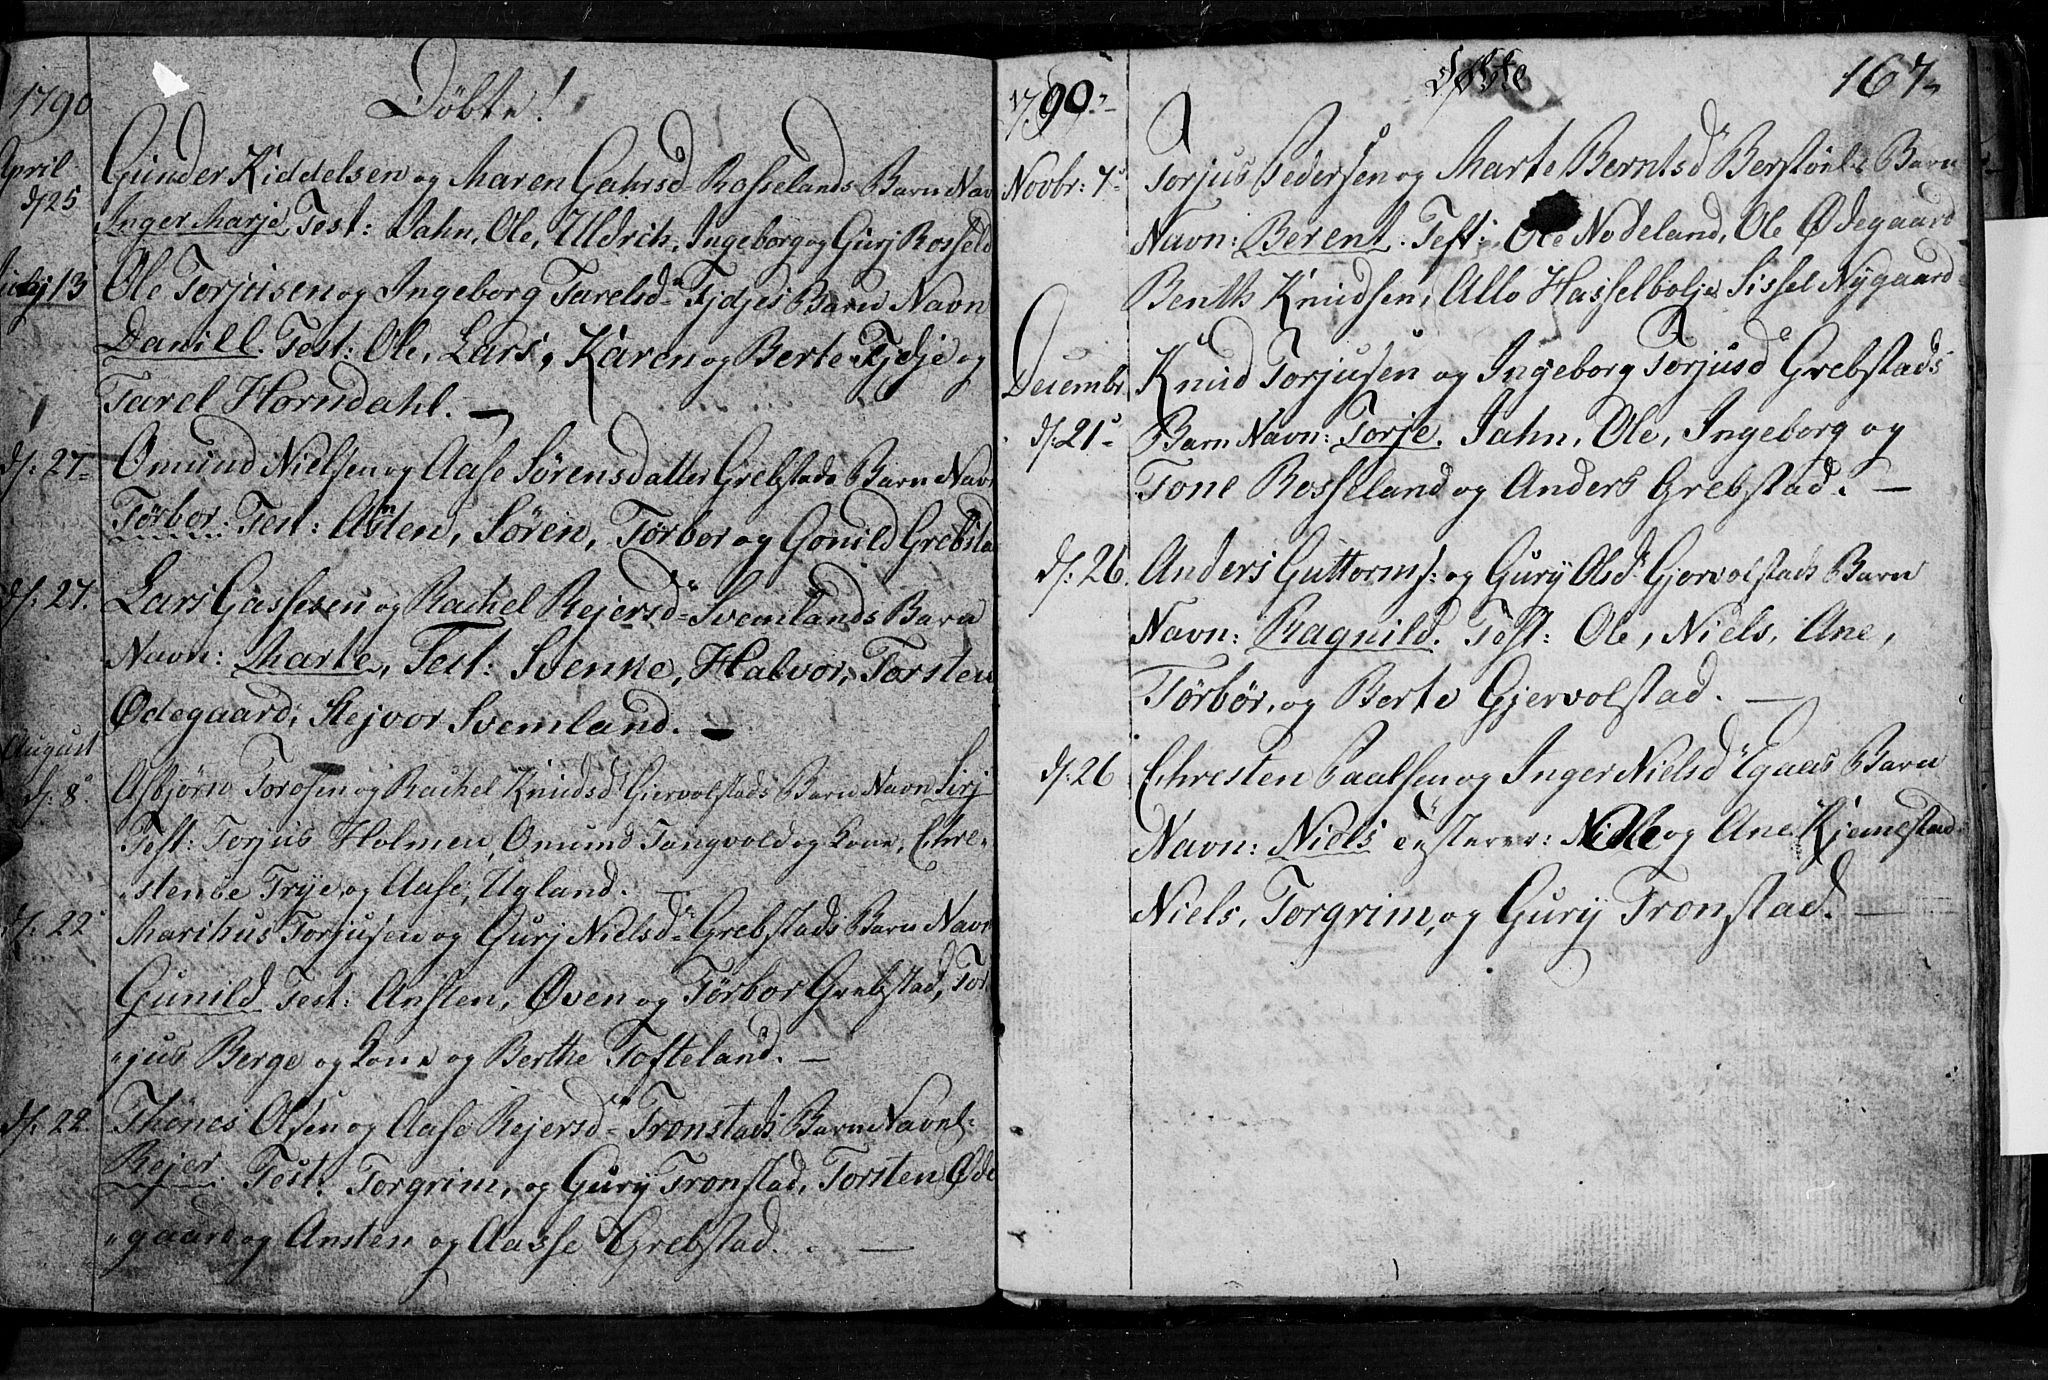 1790
Döbte!
April
d 25
Gunder Kiddelsen og Maren Gahrsd Rosselands Barn Nav
Inger Marje Test: Jahn, Ole, Uldrich, Ingeborg og Gurj Rosseld
July 13
Ole Torjusen og Ingeborg Tarelsd Fjdjes Barn Navn
Daniell. Test: Ole, Lars, Karen og Berte Fjdje og
Tarel Horndahl.
d: 27
Omund Nielsen og Aase Sørensdatter Grebstads Barn Navn
Törbor. Test: Asten, Søren, Törbor og Gonild Grebsta
d: 27.
Lars Gassesen og Rachel Rejersd Svemlands Barn
Navn: Marte, Test: Svenke, Halvor, Torsten
Ødegaard, Stejvor Svemland.
August
d: 8
Asbjørn Torosen og Rachel Knudsd Giervolstads Barn Navn Sirj
Test: Torjus Holmen, Omund Tangvold og Kone, Chre-
stence Trye og Aase Ugland.
d: 22
Marthus Torjusen og Gurj Nielsd Grebstads Barn Navn
Gunild Test: Ansten, Øven og Törbor Grebstad, Tor
jus Berge og Kone og Berthe Tofteland.
d: 22.
Thönes Olsen og Aase Rejersd Tronstads Barn Navnl:
Rejer. Test. Torgrim, og Gurij Tronstad, Torsten Øde
gaard og Ansten og Aasse Grebstad.
1790
Døbte
167
Novbr: 7
Torjus Pedersen og Marte Berntsd Berstöels Barn
Navn: Berent. Test: Ole Nodeland, Ole Ødegaard
Benth Knudsen, Allo Hasselbolje Sissel Nÿgaard
Decembr.
d: 21
Knud Torjusen og Ingeborg Torjusd Grebstads
Barn Navn: Torje. Jahn, Ole, Ingeborg og
Tone Rosseland og Anders Grebstad.
d: 26.
Anders Guttorms: og Gurÿ Olsd Gjervolstads Barn
Navn: Ragnild. Test: Ole, Niels, Ane,
Törbör, og Berte Gjervolstad.
d: 26
Chresten Paalsen og Inger Nielsd Egaas Barn
Navn: Niels og Ane Kjemestad
Niels, Torgrim, og Gurij Tronstad.